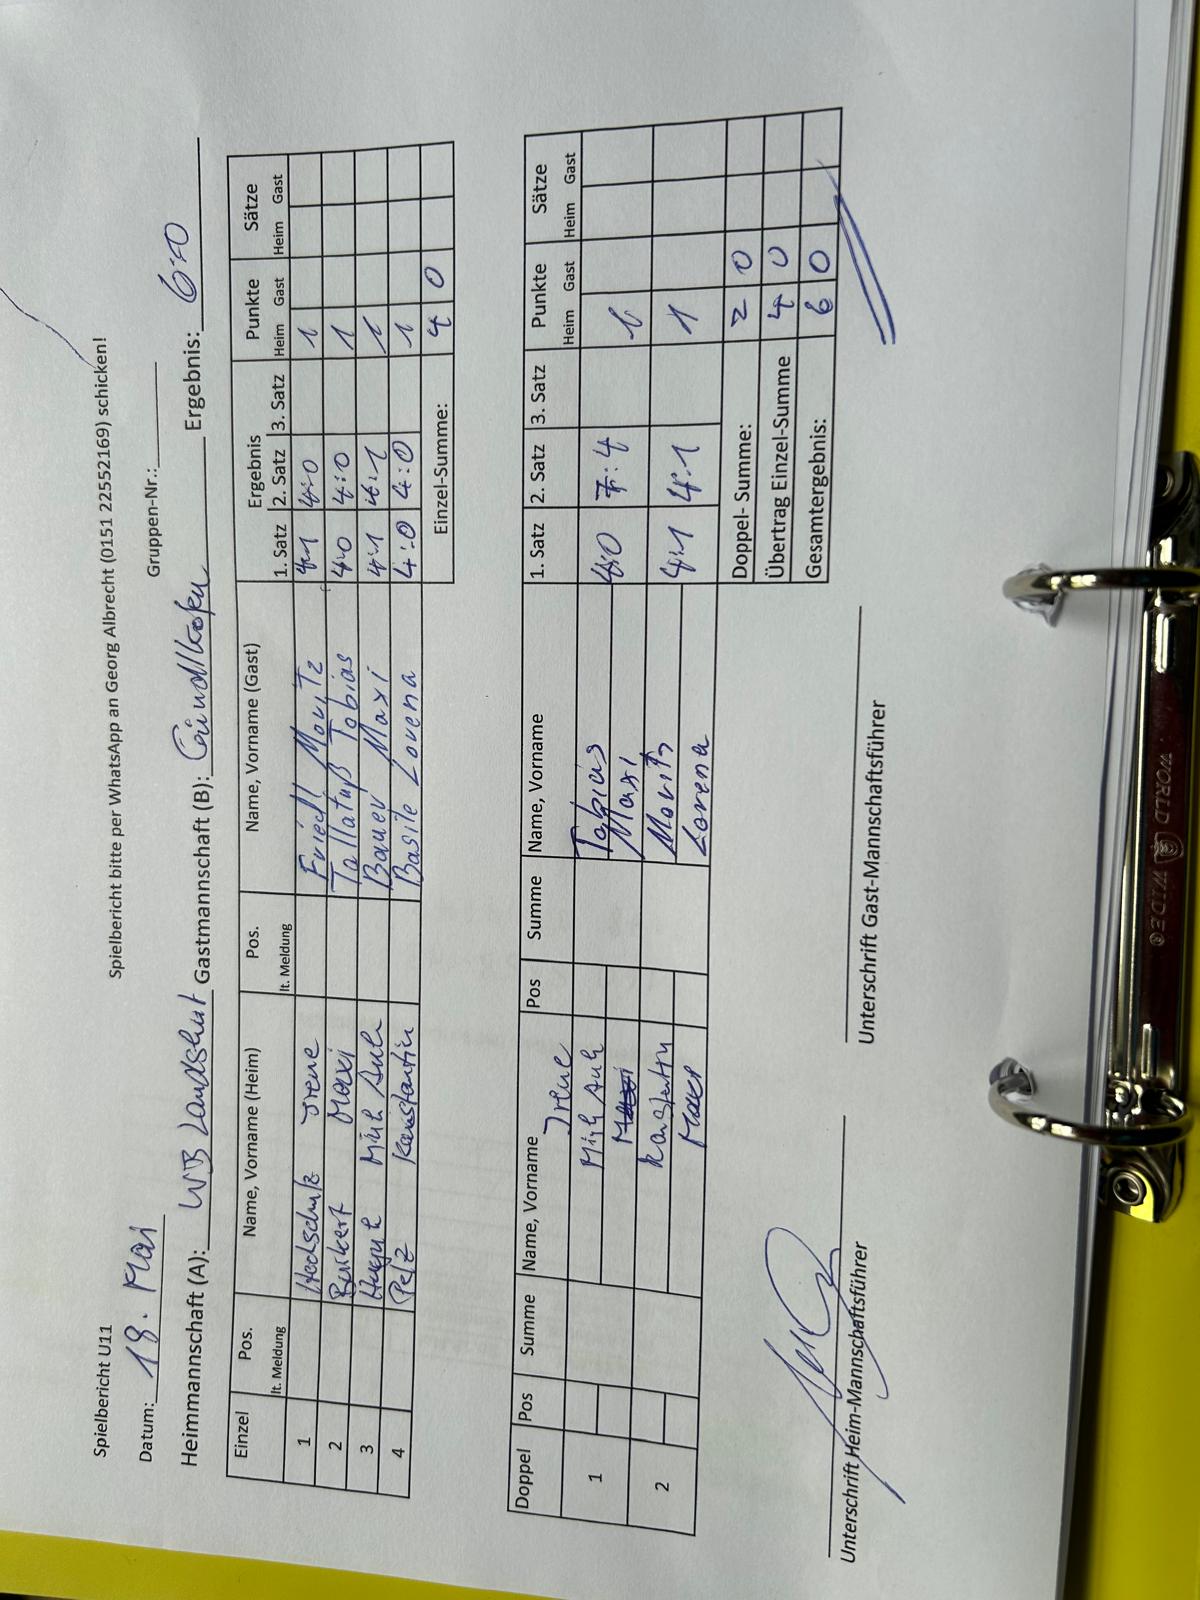 Spielbericht U11
Spielbericht bitte per WhatsApp an Georg Albrecht (0151 22552169) schicken!
Datum: 18. Mai Gruppen-Nr.:
Heimmannschaft (A): WB Landshut Gastmannschaft (B): Gündlkofen Ergebnis: 6:0
Einzel Pos. Name, Vorname (Heim) Pos. Name, Vorname (Gast) Ergebnis Punkte Sätze
lt. Meldung lt. Meldung 1. Satz 2. Satz 3. Satz Heim Gast Heim Gast
1 Irene Friedl Moritz 4:1 4:0 1
2 Burkert Maxi Tallafuß Tobias 4:0 4:0 1
3 Minh Anh Bauer Maxi 4:1 4:1 1
4 Pelz Konstantin Basile Lorena 4:0 4:0 1
Einzel-Summe: 4 0
Doppel Pos Summe Name, Vorname Pos Summe Name, Vorname 1. Satz 2. Satz 3. Satz Punkte Sätze
Heim Gast Heim Gast
1 Irene Tobias 4:0 7:4 1
Minh Anh Maxi
2 Konstantin Moritz 4:1 4:1 1
Maxi Lorena
Doppel- Summe: 2 0
Übertrag Einzel-Summe 4 0
Gesamtergebnis: 6 0
Unterschrift Heim-Mannschaftsführer Unterschrift Gast-Mannschaftsführer
WORLD WIDE®